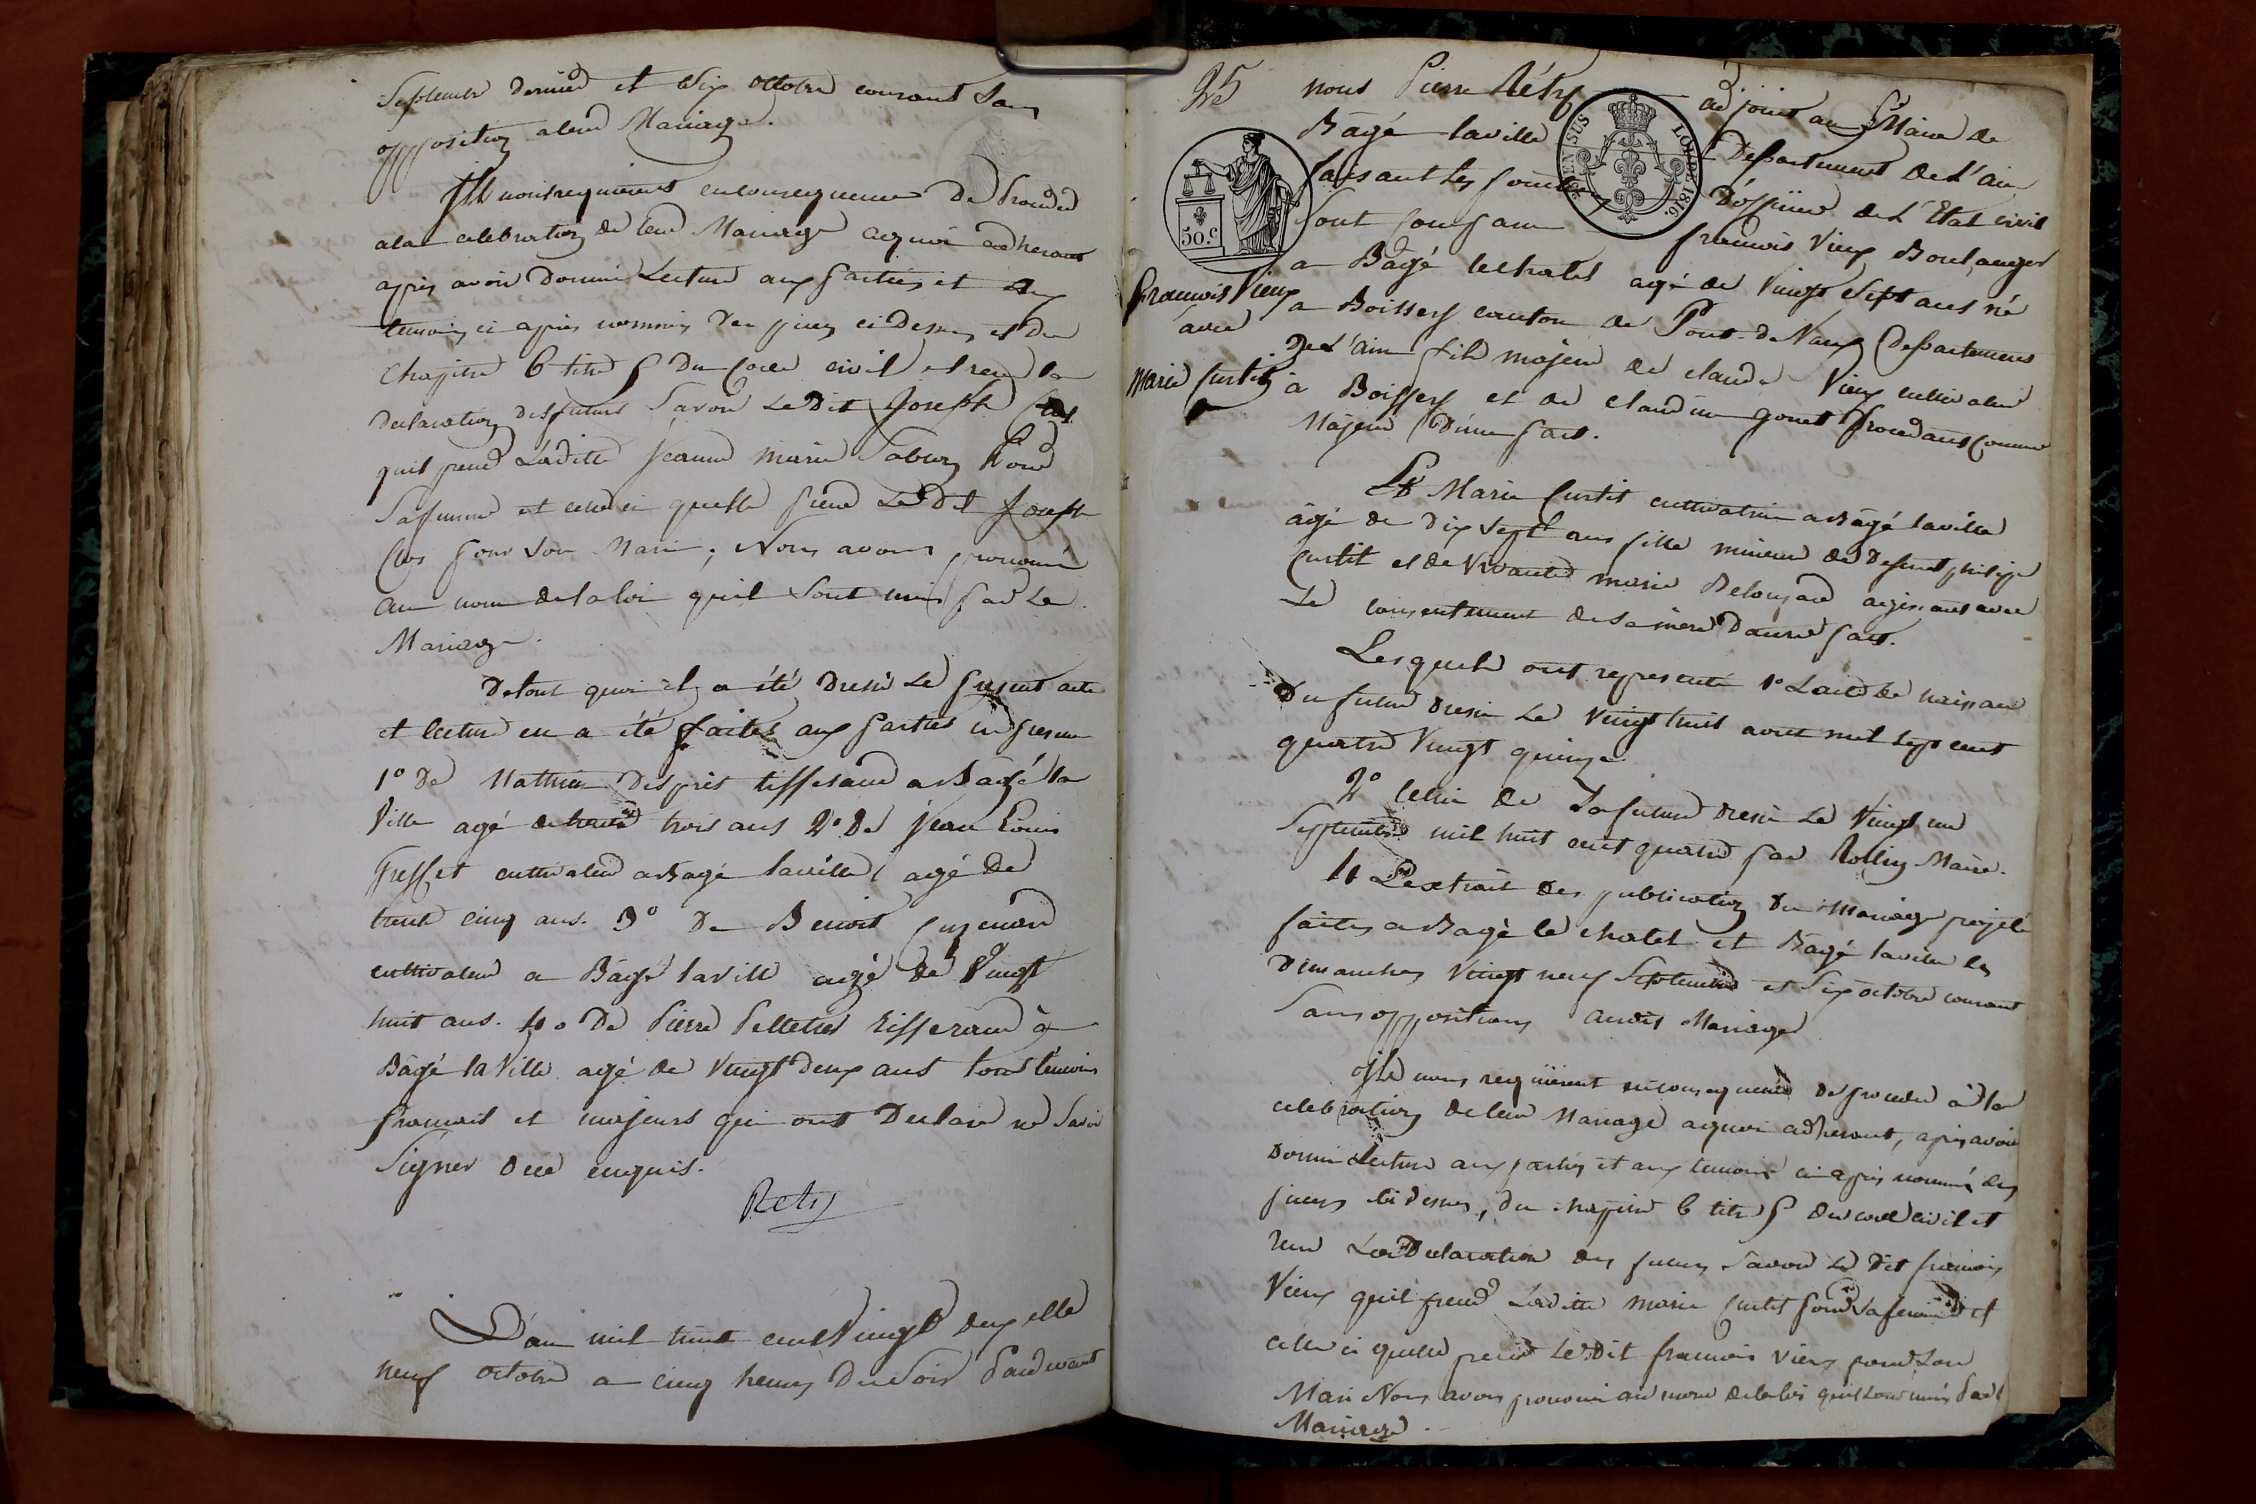 Septembre dernier et Six octobre courant Sans
opposition aleur Mariage.
Ils nous requierent en consequence De Proceder
ala celebration de leur Mariage aquoi adherant
après avoir Donné Lecture aux parties et aux
temoins ci après nommés Des pieces ci Dessus et du
Chapitre 6 titre 5 Du Code civil et recu la
Declaration des futurs Savoir Le Dit Joseph Clos
quil prend Laditte Jeanne Marie Pour
Safemme et celle ci quelle prend Le Dit Joseph
Clos pour Son Mari; Nous avons prononcé
au nom de la loi quil Sont unis par Le
Mariage.
De tout quoi il a été Dressé Le present acte
et lecture en a été faites aux parties en presence
1° De Mathieu Desprès tisserand a Bâgé la
Ville agé de trente trois ans 2° De Jean Louis
cultivateur a Bagé laville agé de
trente cinq ans. 3° De Benoit
cultivateur a Bâgé laville agé de Vingt
huit ans. 4° De Pierre Pelletier tisserand à
Bâgé la Ville agé de Vingt Deux ans tous témoins
francais et majeurs qui ont Declaré ne Savoir
Signer De ce enquis.
Réty
L'an mil huit cent Vingt deux et le
neuf octobre a cinq heures Du Soir Pardevant
35 nous Pierre Réty adjoint au Maire de
Bâgé laville Departement de L'ain
faisant les fonctions D'officier de L'Etat civil
Sont Comparu francois Vieux Boulanger
SUS LOI DE 1816.
50.c
francois Vieux
avec
Marie Curtit
a Bâgé lechatel agé de Vingt Sept ans né
a Boissey canton de Pont-De-Vaux Departement
De L'ain fils majeur de claude Vieux cultivateur
à Boissey et de claudine gonet Procedant Comme
Majeur D'une part.
Et Marie Curtit cultivatrice a Bâgé laville
âgé de Dix Sept ans fille mineure de Defunt philippe
Curtit et de Vivante marie agissant avec
Le consentement de Sa mère D'autre part.
Lesquels ont representé 1° Lacte de naissance
Du futur Dressé Le Vingt huit aout mil sept cent
quatre Vingt quinze.
2° Celui de La future Dressé Le Vingt un
Septembre mil huit cent quatre par Maire.
4 Lextrait des publication Du Mariage projeté
faites a Bagé le chatel et Bâgé laville les
Dimanches Vingt neuf Septembre et Six octobre courant
Sans oppositions audit Mariage
Ils nous requièrent en consequence De proceder à la
celebration de leur Mariage aquoi adherant, après avoir
Donné Lecture aux parties et aux temoins ci après nommés des
pieces ci dessus, du chapitre 6 titre 5 du code civil et
recu La Declaration des futurs Savoir Le Dit francois
Vieux quil prend Laditte Marie Curtit pour Safemme et
celle ci quelle prend Le Dit francois Vieux pour Son
Mari Nous avons prononcé au nom de la loi quil Sont unis Par l
Mariage.